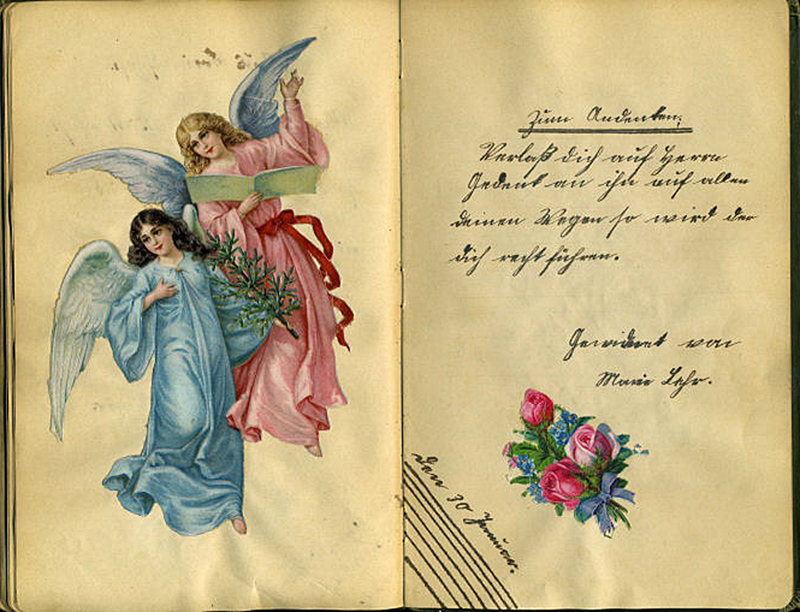 Zum Andenken.
Verlaß dich auf Herrn
Gedenk an ihn auf allen
deinen Wegen so wird der
dich recht führen.
Gewidmet von
Marie Lehr.
den 30 Januar.